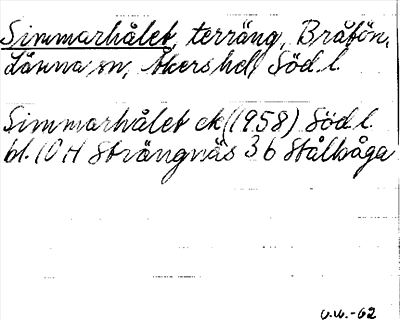 Simmarhålet, terräng, Bråtön,
Länna sn, Åkers hd, Söd.l.
Simmarhålet ek (1958) Söd.l.
bl. 10 H Strängnäs 3 b Stålbåga
U.W.-62